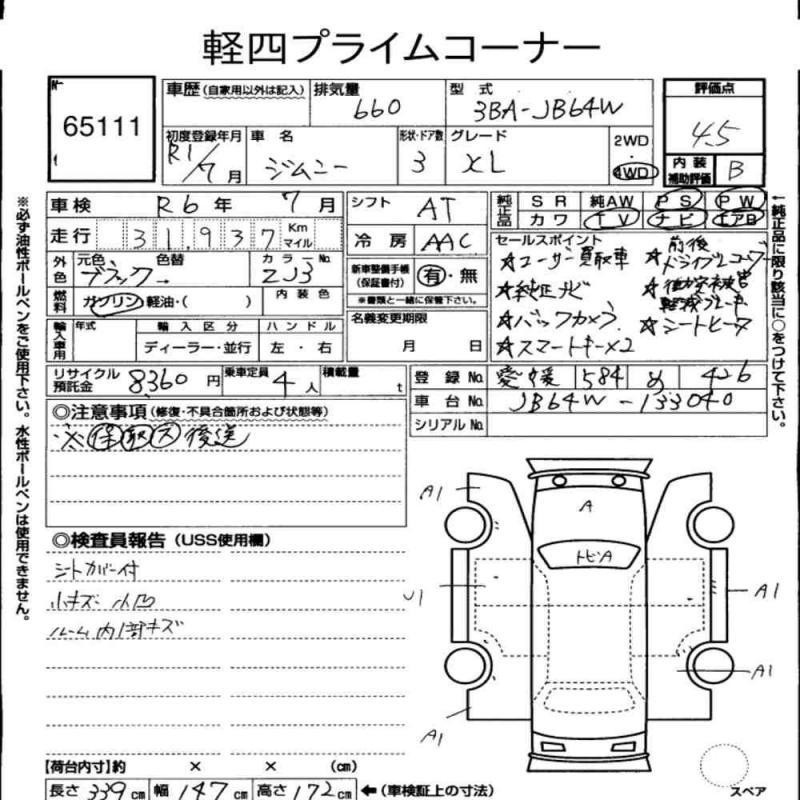 軽四プライムコーナー
65111
車歴 (自家用以外は記入) 排気量 660 型式 3BA-JB64W
評価点 4.5
初度登録年月 R1/7月 車名 ジムニー 形状・ドア数 3 グレード XL 2WD・4WD
内装補助評価 B
車検 R6年 7月 シフト AT 純正品 SR 純AW PS PW
カワ TV ナビ エアB
走行 31,937 Km マイル 冷房 AAC
外色 元色 ブラック 色替 カラーNo. ZJ3
新車整備手帳 (保証書付) 有・無
※書類と一緒に保管下さい。
燃料 ガソリン・軽油・( ) 内装色
セールスポイント
☆ユーザー買取車
☆純正ナビ
☆バックカメラ
☆スマートキー×2
☆前後ドライブレコーダー
☆衝突被害軽減ブレーキ
☆シートヒータ
名義変更期限 月 日
輸入車用 年式 輸入区分 ハンドル
ディーラー・並行 左・右
リサイクル預託金 8360円 乗車定員 4人 積載量 t
登録No. 愛媛 584 め 426
車台No. JB64W-133040
シリアルNo.
◎注意事項 (修修・不具合箇所および状態等)
※保取ス後送
◎検査員報告 (USS使用欄)
シートカバー付
小キズ 小凹
ルーム内1部キズ
A1
A
トビA
U1
A1
A1
A1
スペア
【荷台内寸】約 × × (cm)
長さ 339cm 幅 147cm 高さ 172cm ←(車検証上の寸法)
※必ず油性ボールペンをご使用下さい。水性ボールペンは使用できません。
←純正品に限り該当に○をつけて下さい。